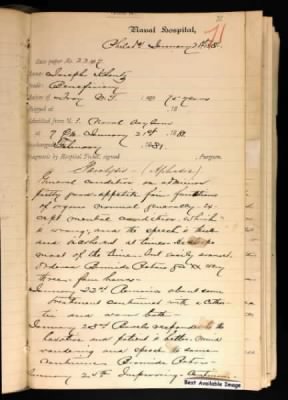 71
Naval Hospital,
Philada January 21st 188
Case paper No.
Name: Joseph
Grade: Beneficiary
Native of Troy N.Y. Age 75 years
Shipped at 18
Admitted from U.S. Naval Asylum
at 7 P.M. January 21st 188
Discharged February 1881
Diagnosis by Hospital Ticket, signed Surgeon.
Paralysis — (Aphasia)
General condition on admission
pretty good appetite fair functions
of organs normal generally ex-
cept mental condition which
is wrong; and the speech is thick
and at times. Sleeps
most of the time but easily aroused.
Ordered Bromide Potass gr xx every
three four hours
January 22nd about same
treatment continued with a
and warm bath
January 23d Bowels respond to the
laxative and patient is better. Mind
wandering and speech the same
Continue Bromide Potass
January 24th Improving
Best Available Image